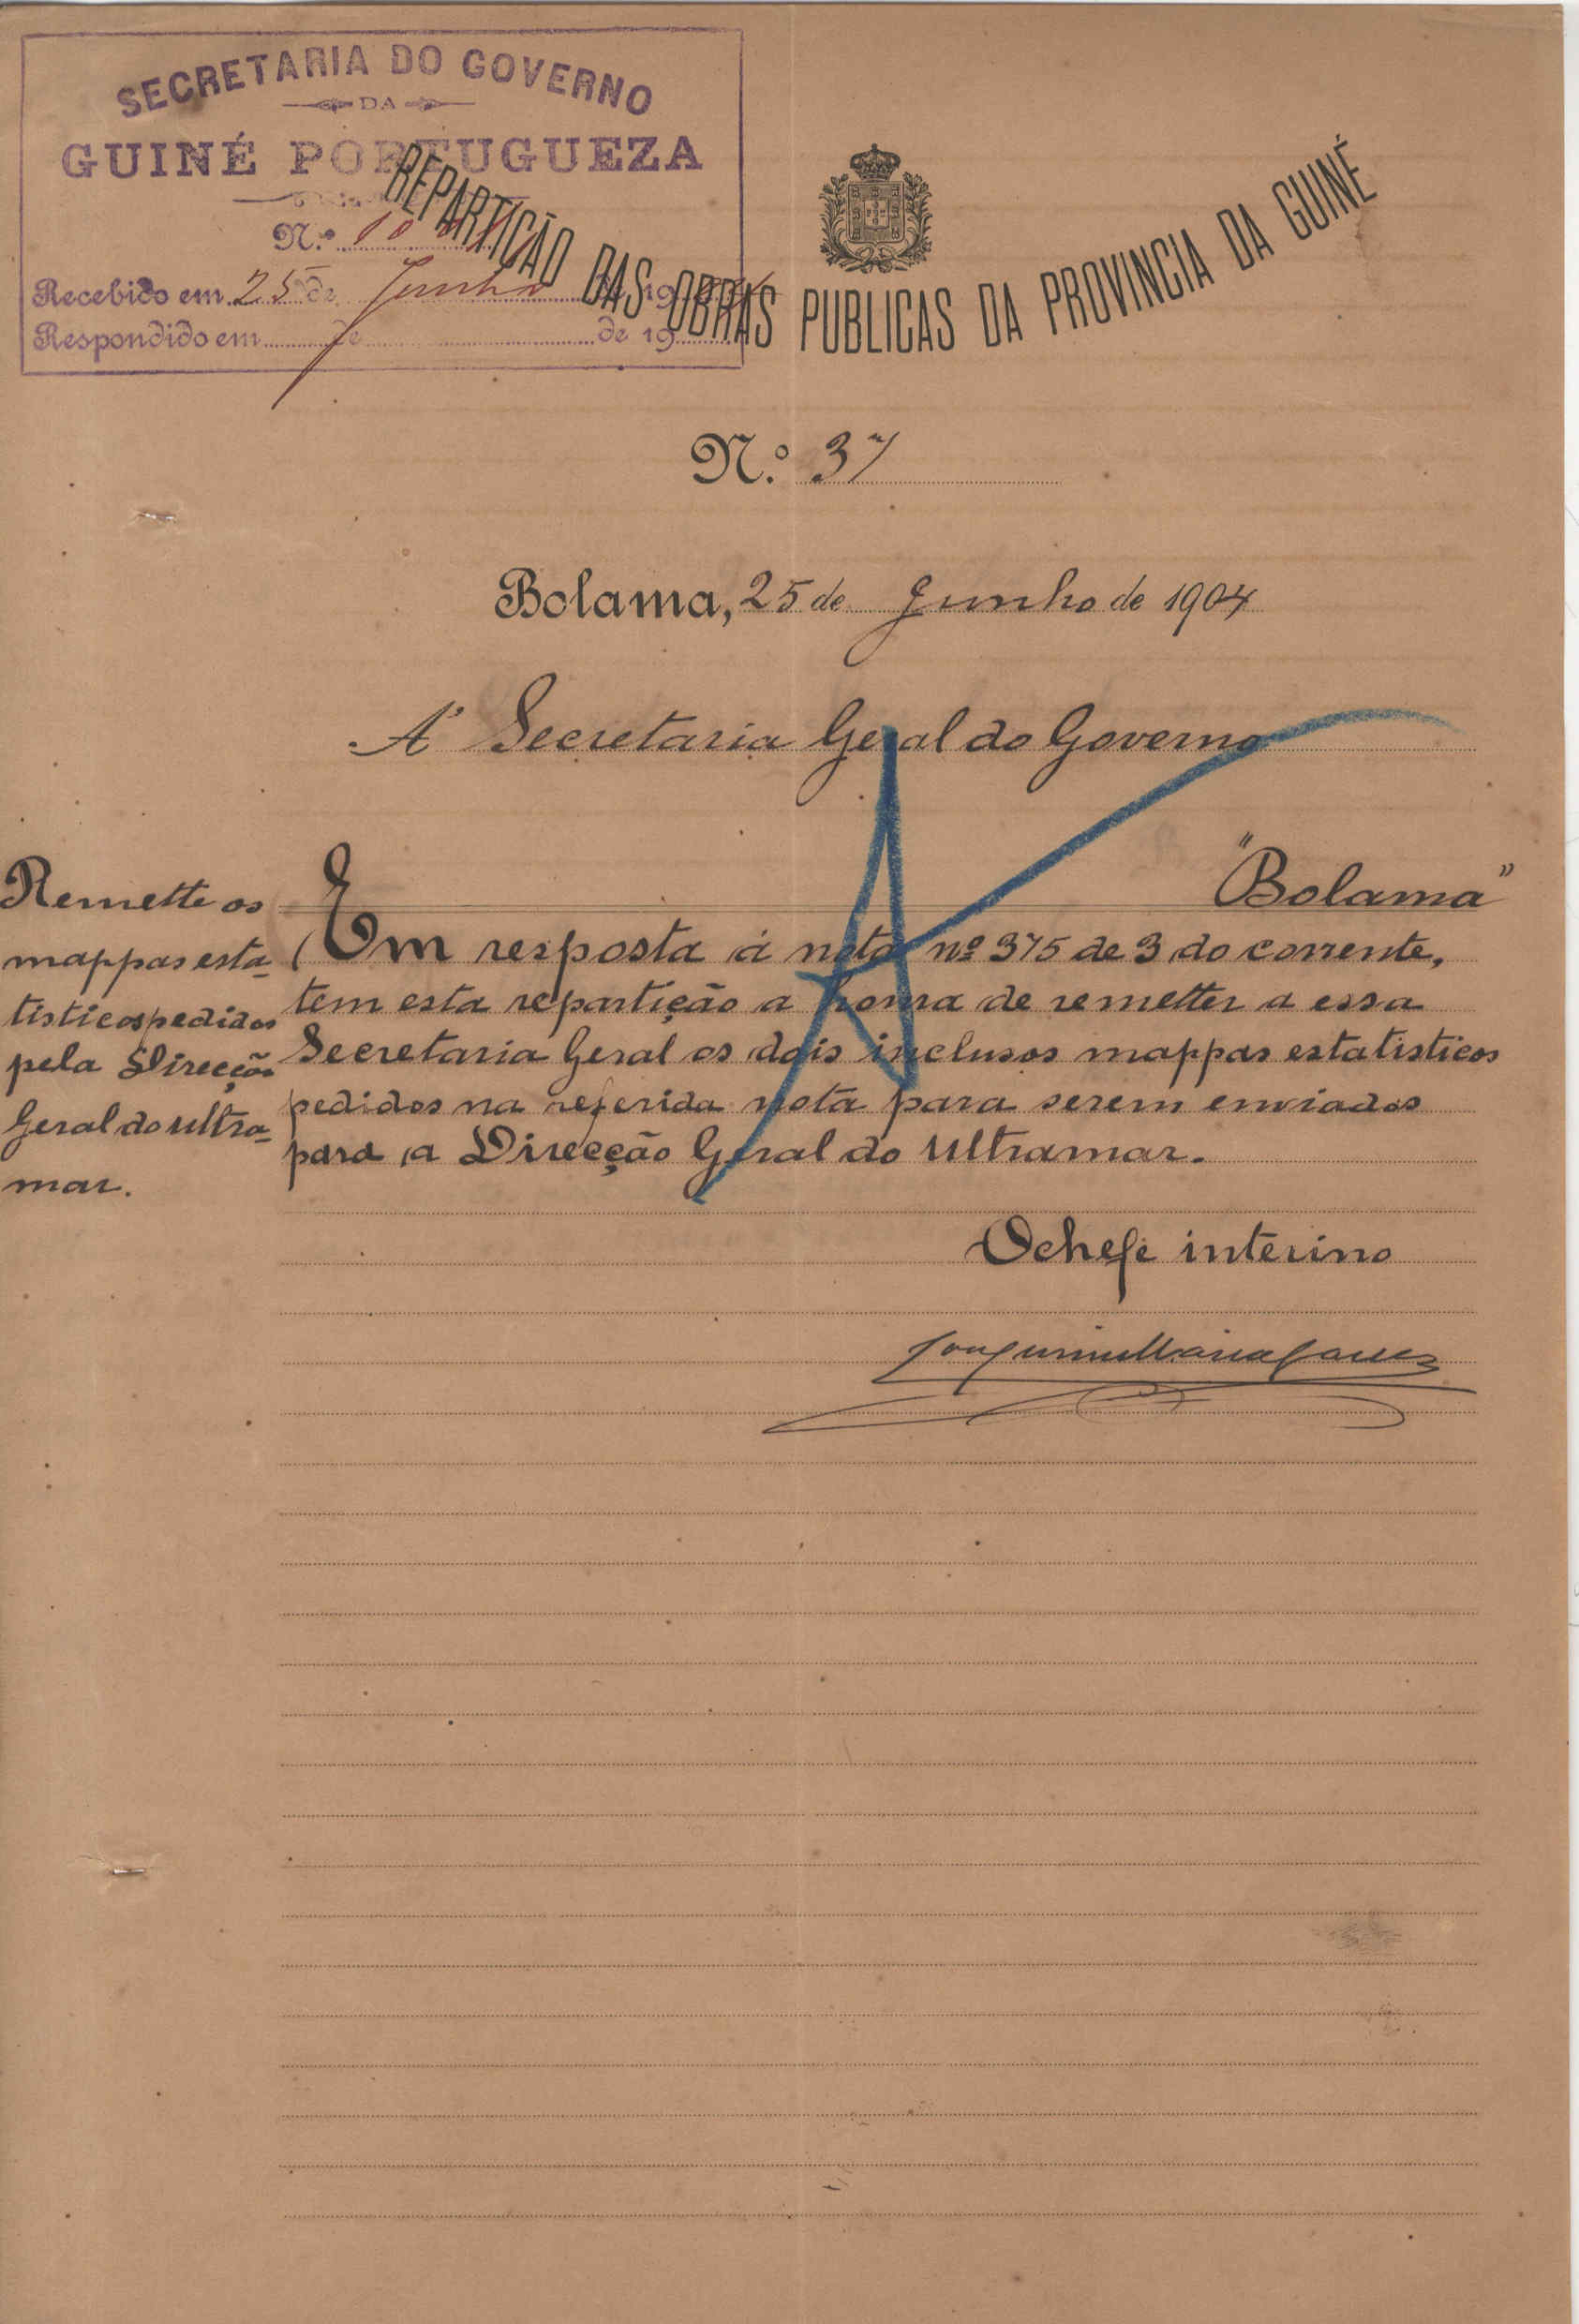 SECRETARIA DO GOVERNO
DA
GUINÉ PORTUGUEZA
N.º
Recebido em 25 de Junho de 1904
Respondido em de de 19
REPARTIÇÃO DAS OBRAS PUBLICAS DA PROVINCIA DA GUINÉ
N.º 37
Bolama, 25 de Junho de 1904
A' Secretaria Geral do Governo
"Bolama"
Remette os
mappas esta-
tisticos pedidos
pela Direcção
Geral do Ultra-
mar.
Em resposta á nota nº 375 de 3 do corrente,
tem esta repartição a honra de remetter a essa
Secretaria Geral os dois inclusos mappas estatisticos
pedidos na referida nota para serem enviados
para a Direcção Geral do Ultramar.
O chefe interino
Joaquim Maria